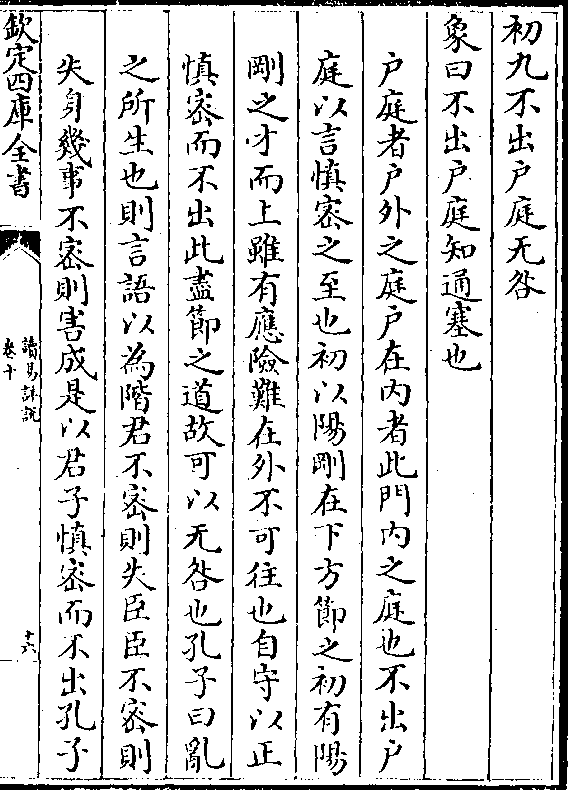 初九不出户庭无咎
象曰不出户庭知通塞也
户庭者户外之庭户在内者此門内之庭也不出户
庭以言慎密之至也初以陽剛在下方節之初有陽
剛之才而上雖有應險難在外不可徃也自守以正
慎密而不出此盡節之道故可以无咎也孔子曰亂
之所生也則言語以為階君不密則失臣臣不密則
失身幾事不密則害成是以君子慎密而不出孔子
欽定四庫全書
讀易詳說
卷十
十六